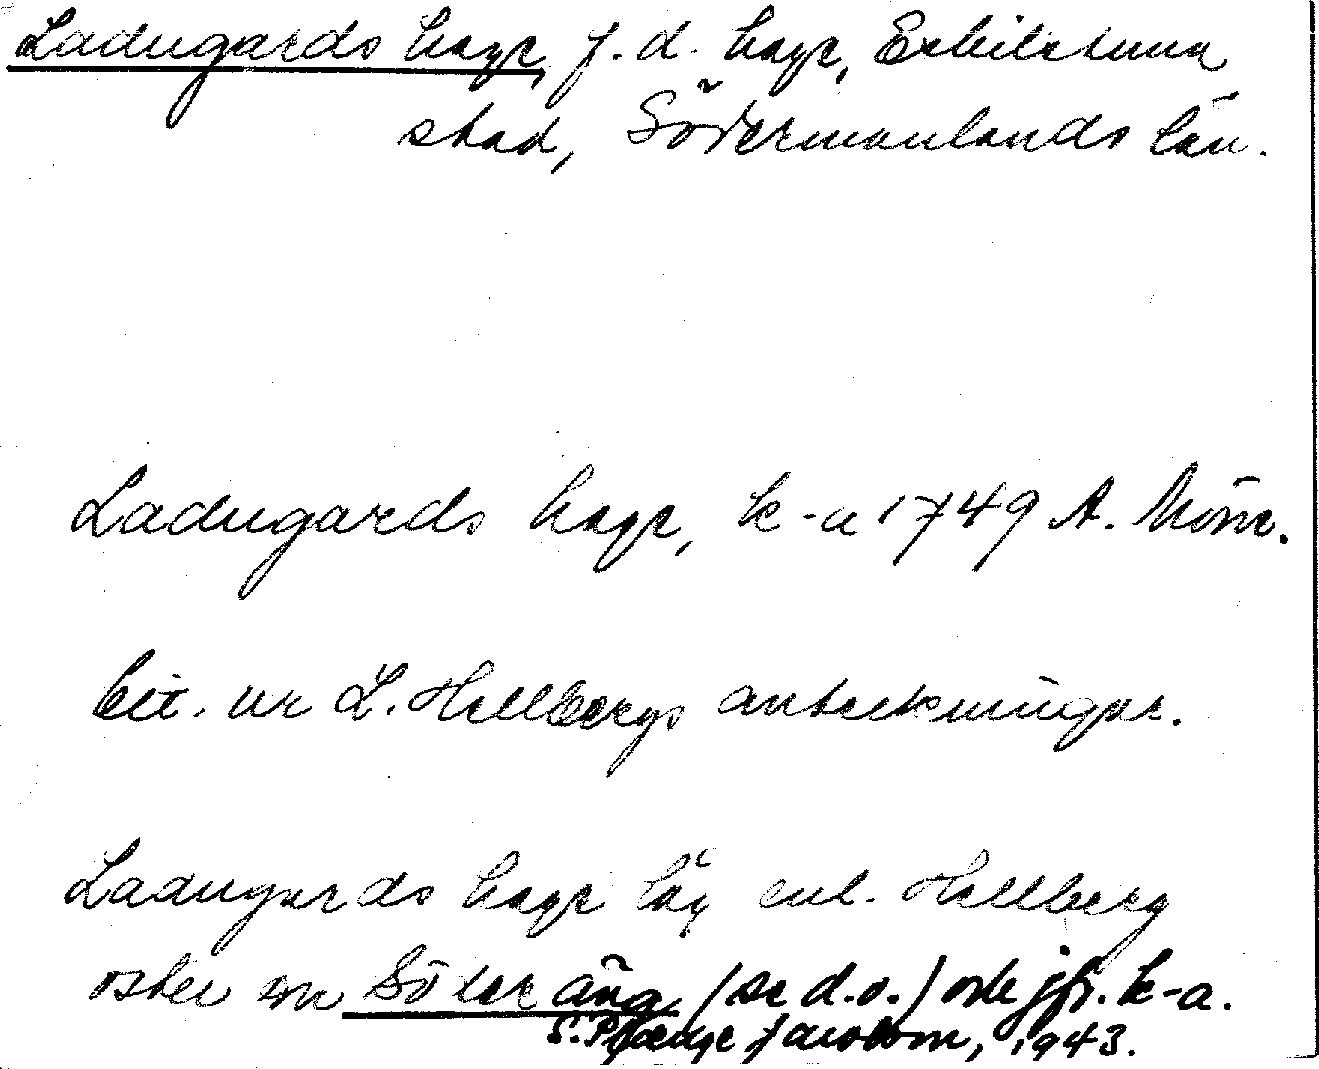 Ladugards hage, f.d. hage, Eskilstuna
stad, Södermanlands län.
Ladugards hage, k-a 1749 A. Mörn.
Cit. ur L. Hellbergs anteckningar.
Ladugards hage låg enl. Hellberg
öster om Söder äng (se d.o.) och jfr. k-a.
S. 1943.